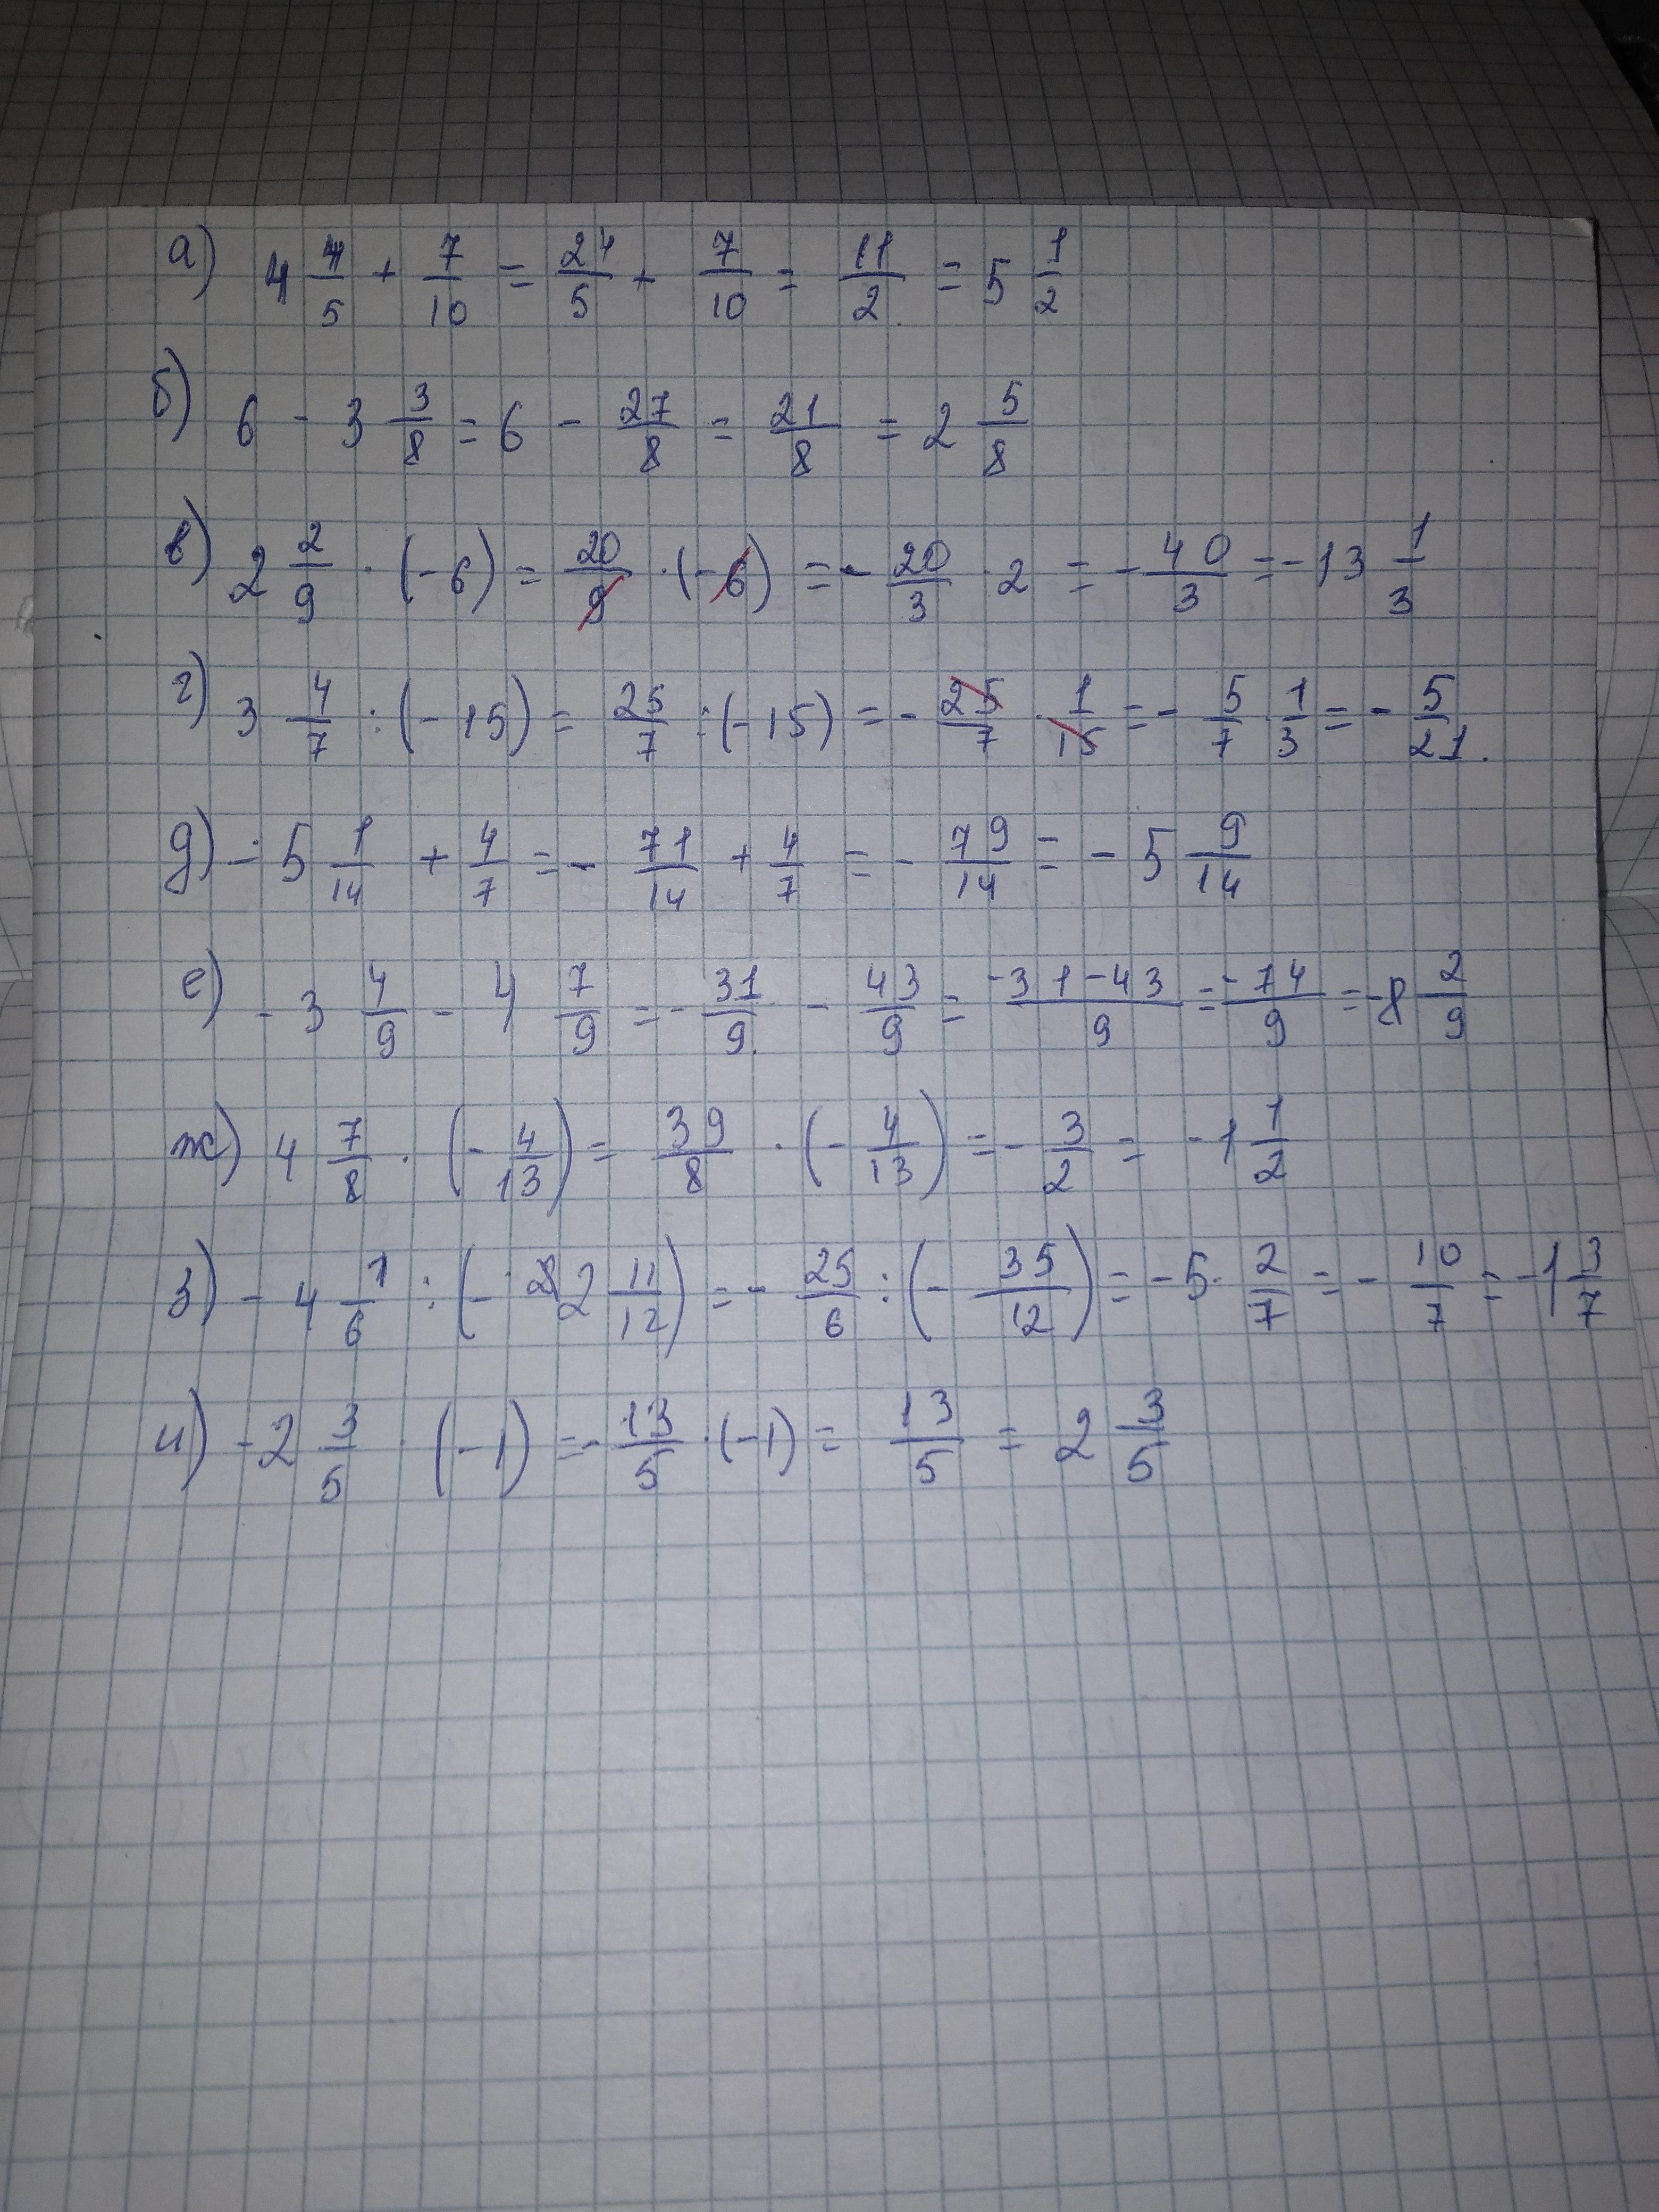 а) 4 4/5 + 7/10 = 24/5 + 7/10 = 11/2 = 5 1/2
б) 6 - 3 3/8 = 6 - 27/8 = 21/8 = 2 5/8
в) 2 2/9 · (-6) = 20/9 · (-6) = - 20/3 · 2 = - 40/3 = -13 1/3
г) 3 4/7 : (-15) = 25/7 : (-15) = - 25/7 · 1/15 = - 5/7 · 1/3 = - 5/21.
д) - 5 1/14 + 4/7 = - 71/14 + 4/7 = - 79/14 = - 5 9/14
е) - 3 4/9 - 4 7/9 = - 31/9 - 43/9 = -31-43/9 = -74/9 = -8 2/9
ж) 4 7/8 · (- 4/13) = 39/8 · (- 4/13) = - 3/2 = - 1 1/2
з) - 4 1/6 : (- 2 11/12) = - 25/6 : (- 35/12) = -5 · 2/7 = - 10/7 = -1 3/7
и) -2 3/5 · (-1) = - 13/5 · (-1) = 13/5 = 2 3/5